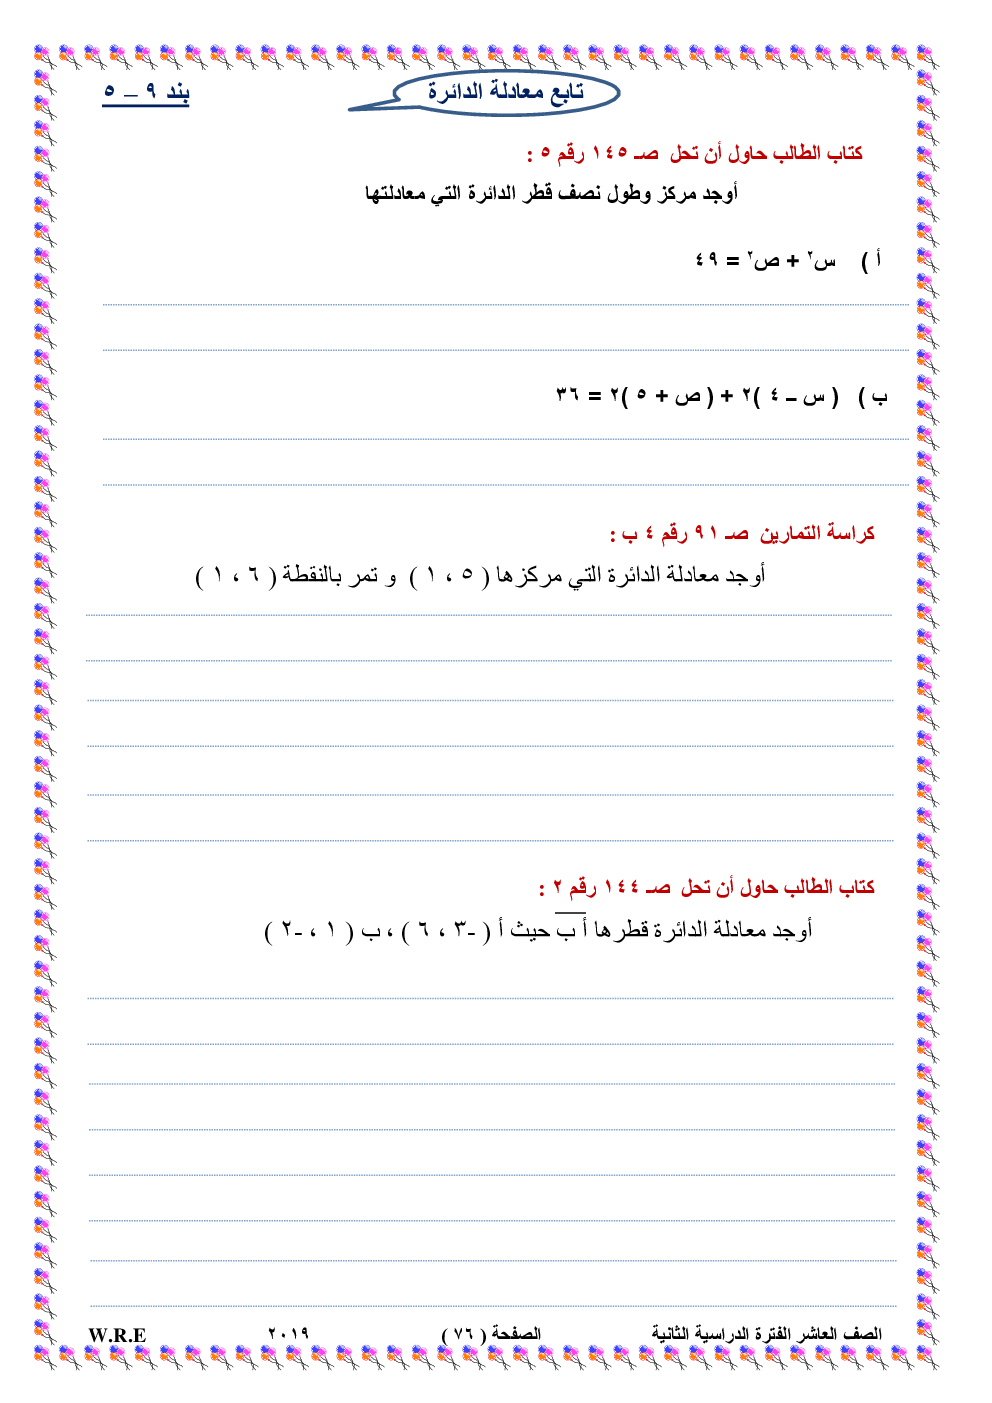 تابع معادلة الدائرة
بند ٩ – ٥
كتاب الطالب حاول أن تحل صـ ١٤٥ رقم ٥ :
أوجد مركز وطول نصف قطر الدائرة التي معادلتها
أ ) س٢ + ص٢ = ٤٩
ب ) ( س – ٤ )٢ + ( ص + ٥ )٢ = ٣٦
كراسة التمارين صـ ٩١ رقم ٤ ب :
أوجد معادلة الدائرة التي مركزها ( ٥ ، ١ ) و تمر بالنقطة ( ٦ ، ١ )
كتاب الطالب حاول أن تحل صـ ١٤٤ رقم ٢ :
أوجد معادلة الدائرة قطرها أ ب حيث أ ( -٣ ، ٦ ) ، ب ( ١ ، -٢ )
الصف العاشر الفترة الدراسية الثانية الصفحة ( ٧٦ ) ٢٠١٩ W.R.E